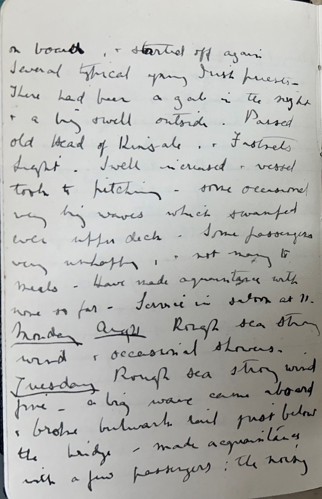 on board, & started off again
Several typical young Irish priests -
There had been a gale in the night
& a big swell outside. Passed
old Head of Kinsale, & Fastnets
light. Swell increased & vessel
took to pitching - some occasional
very big waves which swamped
even upper deck - Some passengers
very unhappy, & not many to
meals - Have made aquaintance with
none so far - Service in saloon at 11.
Monday Rough sea strong
wind & occasional showers.
Tuesday Rough sea strong wind
fine - a big wave came aboard
& broke bulwark rail just below
the bridge - made acquaintance
with a few passengers; the noisy